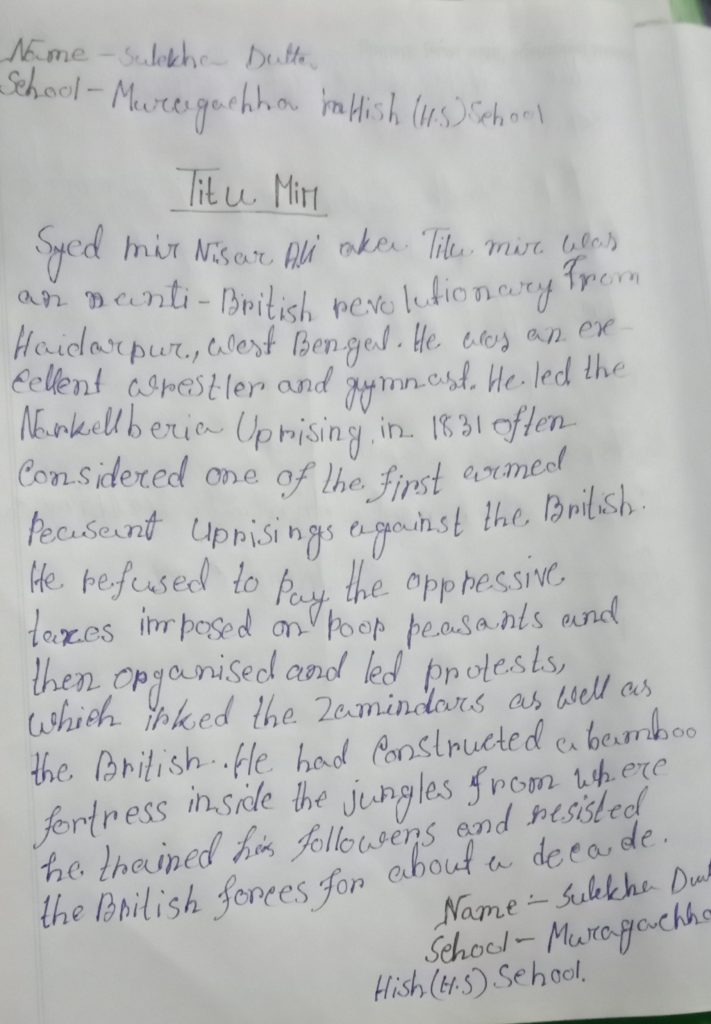 Name - Sulekha Dutta
School - Muragachha Hish (H.S) School
Titu Mir
Syed mir Nisar Ali aka Titu mir was
an anti - British revolutionary from
Haidarpur, West Bengal. He was an ex-
cellent wrestler and gymnast. He led the
Narkellberia Uprising in 1831 often
Considered one of the first armed
Peasant Uprisings against the British.
He refused to pay the oppressive
taxes imposed on poor peasants and
then organised and led protests,
which irked the Zamindars as well as
the British. He had Constructed a bamboo
fortress inside the jungles from where
he trained his followers and resisted
the British forces for about a decade.
Name :- Sulekha Dutt
School - Muragachha
Hish (H.S) School.